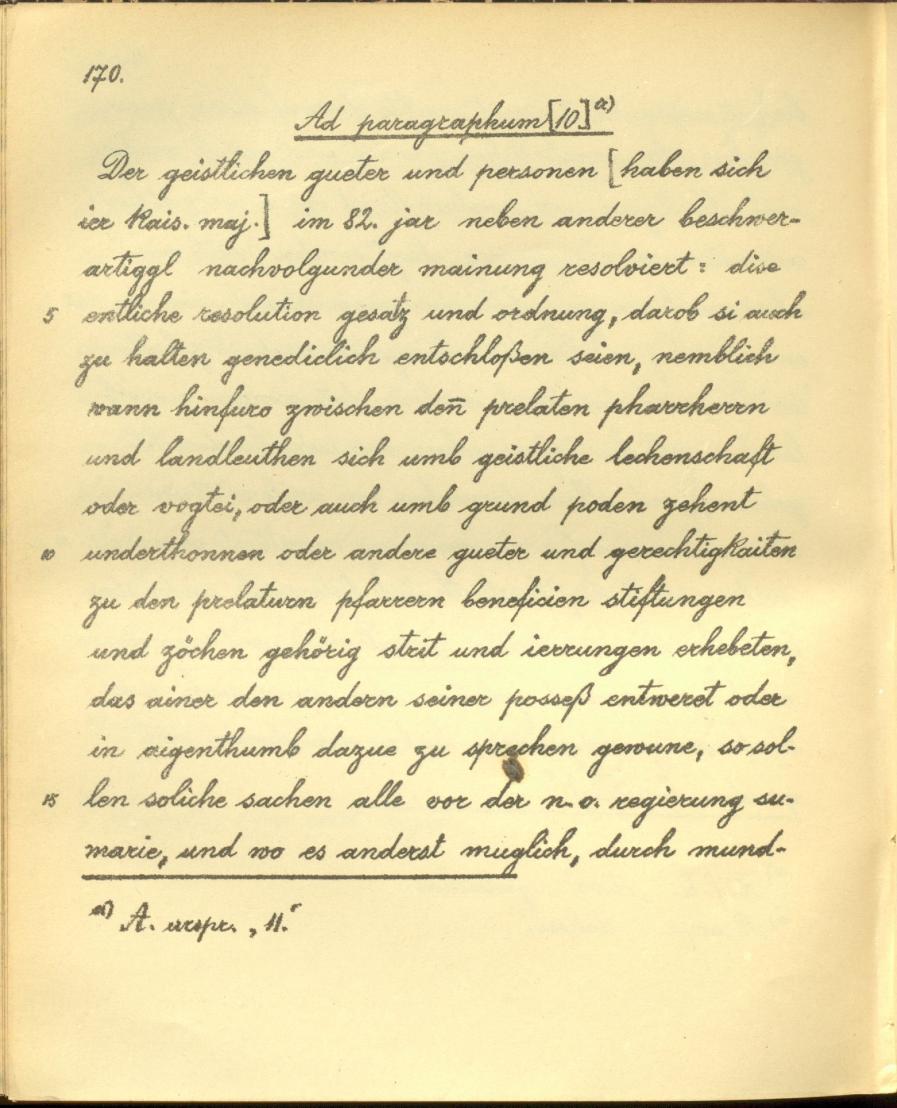 170.
Ad paragraphum [10] a)
Der geistlichen gueter und personen [haben sich
ier kais. maj.] im 82. jar neben anderer beschwer-
artiggl nachvolgunder mainung resolviert: dise
5 entliche resolution gesatz und ordnung, darob si auch
zu halten genediclich entschloßen seien, nemblich
wann hinfuro zwischen den̄ prelaten pharrherrn
und landleuthen sich umb geistliche lechenschaft
oder vogtei, oder auch umb grund poden zehent
10 underthonnen oder andere gueter und gerechtigkaiten
zu den prelaturn pfarrern beneficien stiftungen
und zöchen gehörig strit und ierrungen erhebeten,
das ainer den andern seiner posseß entweret oder
in aigenthumb dazue zu sprechen gewune, so sol-
15 len soliche sachen alle vor der n. o. regierung su-
marie, und wo es anderst muglich, durch mund-
a) A. urspr. „11.“